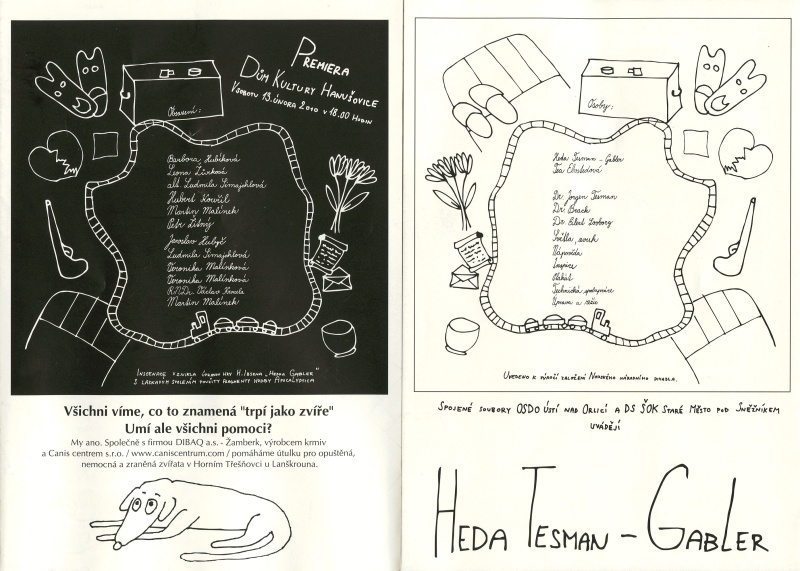 Premiera
Dům Kultury Hanušovice
V sobotu 13. února 2010 v 18.00 hodin
Obsazení:
Barbora Hubíková
Leona Zinková
alt. Ludmila Šimajchlová
Hubert Kouřil
Martin Malínek
Petr Žitný
Jaroslav
Ludmila Šimajchlová
Veronika Malínková
Veronika Malínková
RNDr. Václav
Martin Malínek
Inscenace vznikla úpravou hry H. Ibsena „Hedda Gabler"
S laskavým svolením použity fragmenty hudby Apocalyptica
Všichni víme, co to znamená "trpí jako zvíře"
Umí ale všichni pomoci?
My ano. Společně s firmou DIBAQ a.s. - Žamberk, výrobcem krmiv
a Canis centrem s.r.o. / www.caniscentrum.com / pomáháme útulku pro opuštěná,
nemocná a zraněná zvířata v Horním Třešňovci u Lanškrouna.
Osoby:
Heda Tesman - Gabler
Tea Elvstedová
Dr. Jorgen Tesman
Dr. Brack
Dr. Eilert Lovborg
Světla, zvuk
Nápověda
Inspice
Plakát
Technická spolupráce
Úprava a režie
Uvedeno k výročí založení Norského národního divadla.
Spojené soubory OSDO Ústí nad Orlicí a DS ŠOK Staré Město pod Sněžníkem
uvádějí
Heda Tesman - Gabler